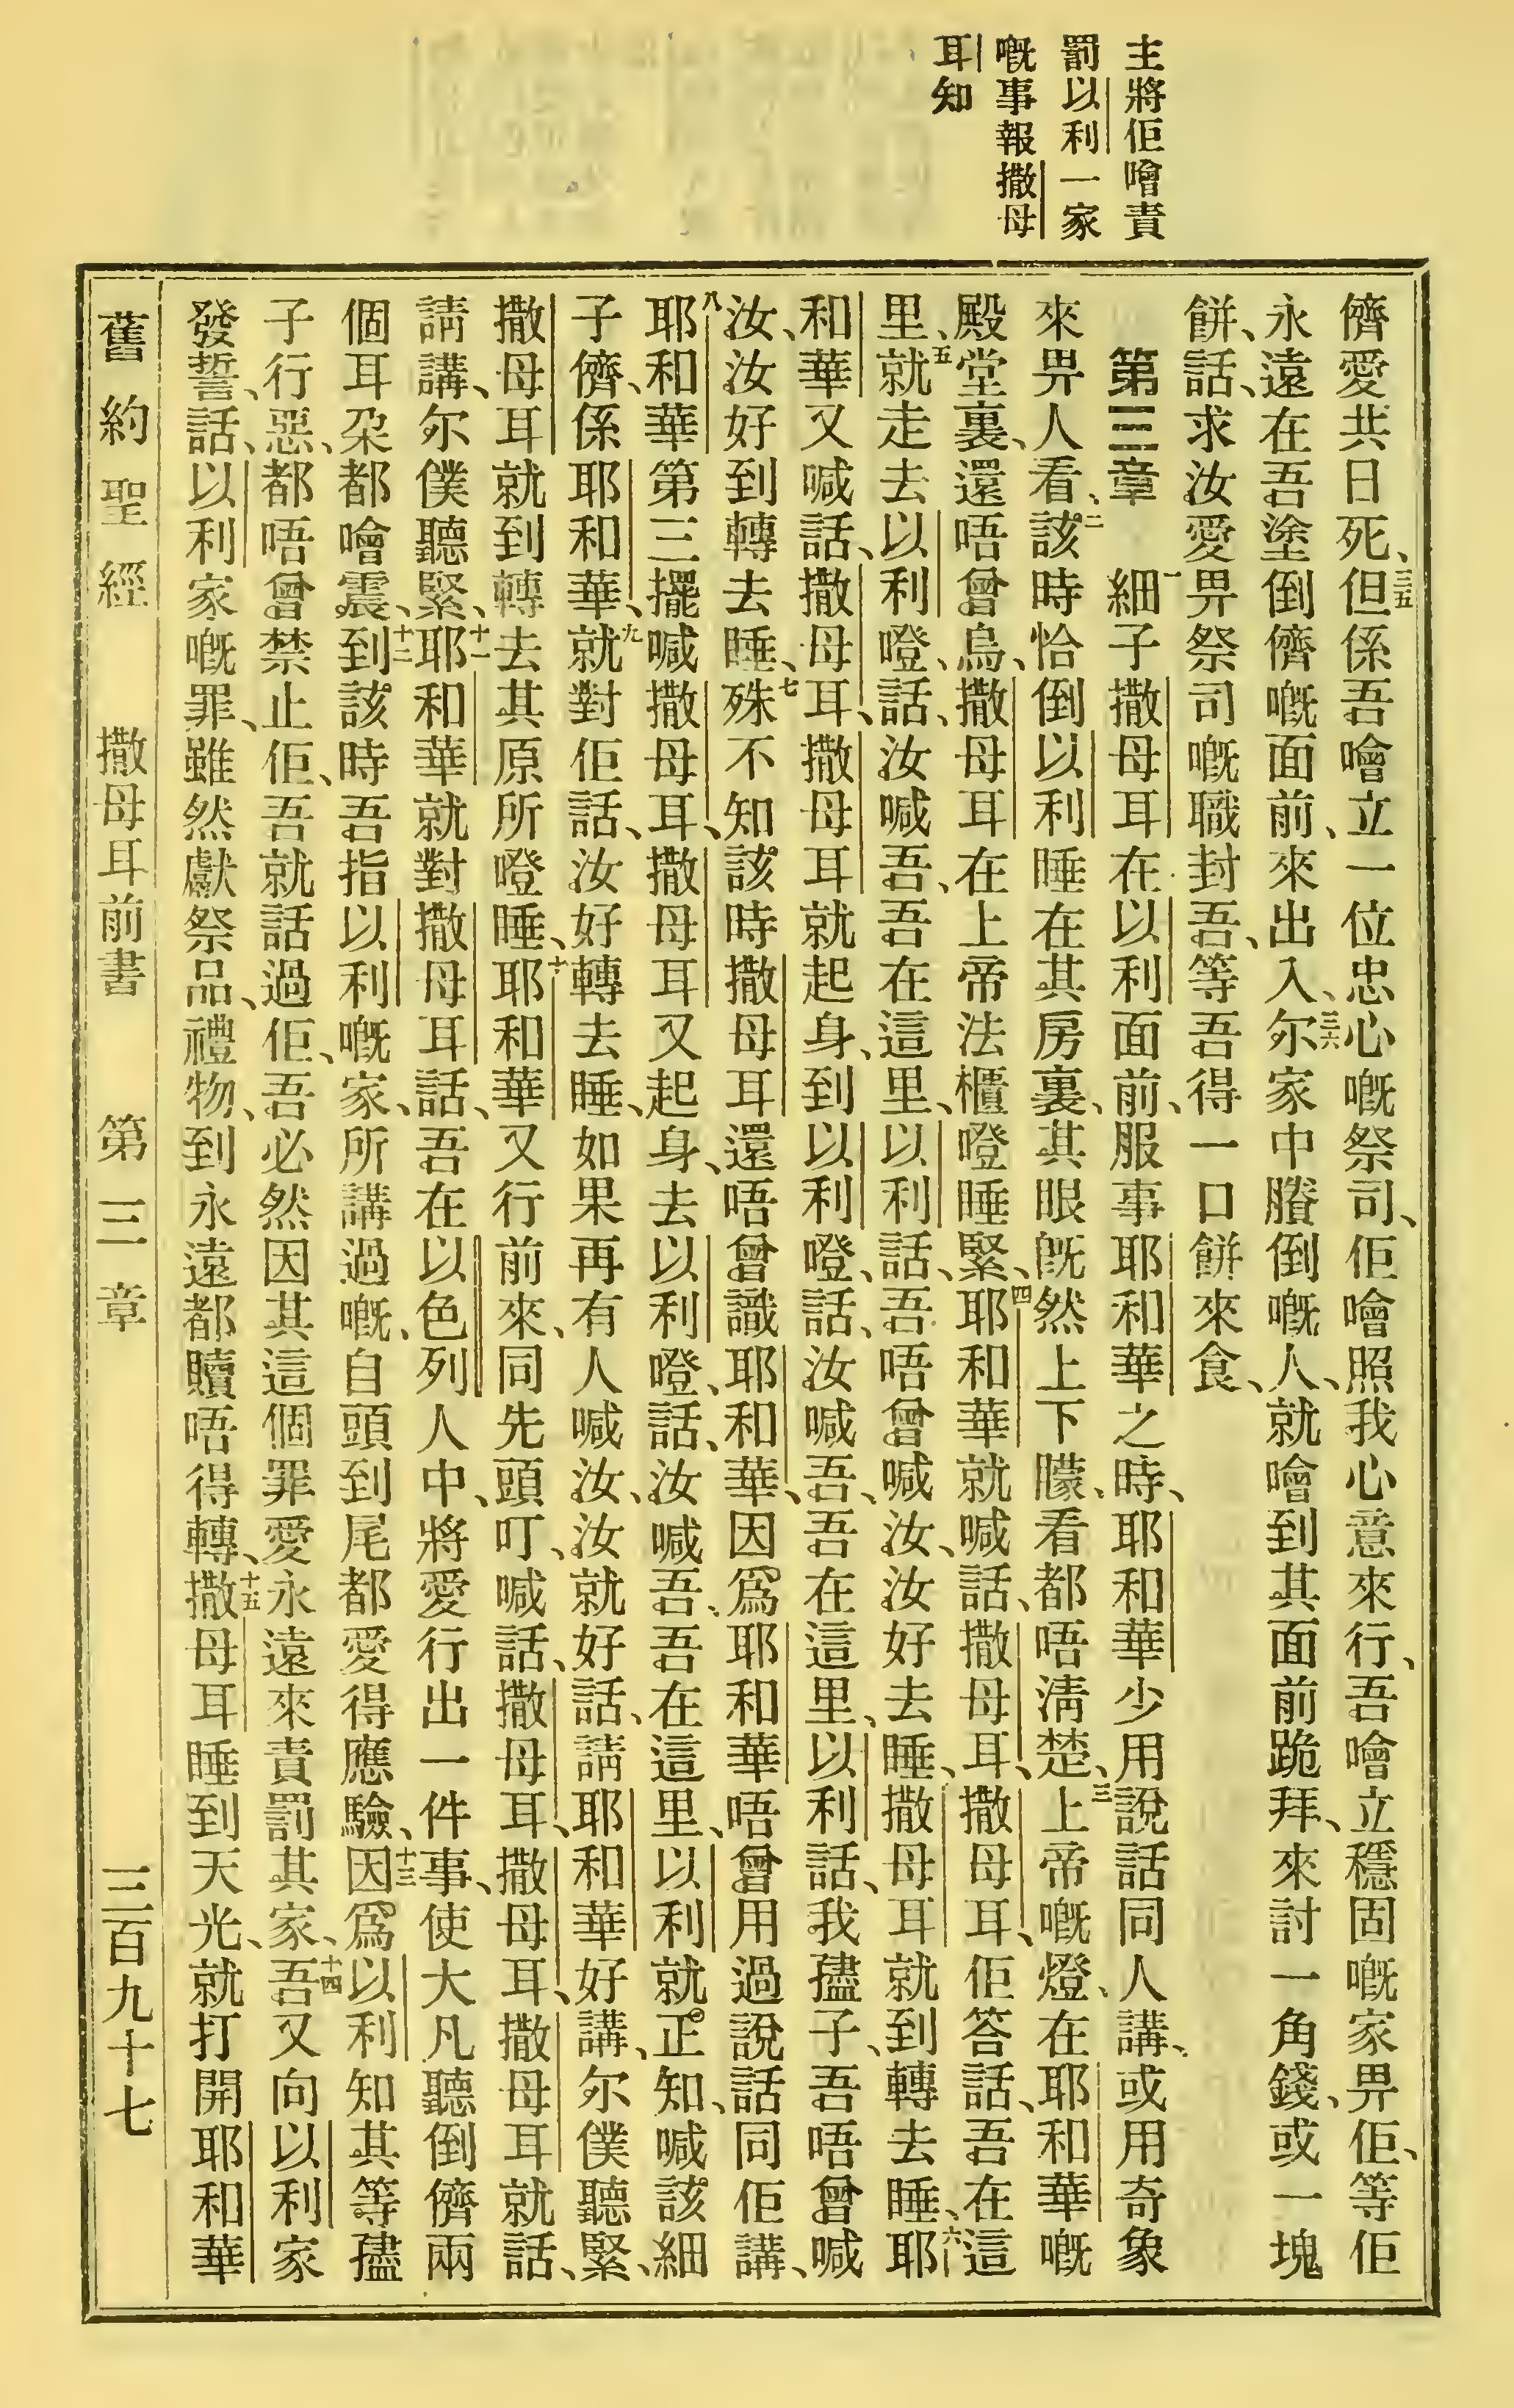 主將佢噲責
罰以利一家
嘅事報撒母
耳知
儕愛共日死、三五但係吾噲立一位忠心嘅祭司、佢噲照我心意來行、吾噲立穩固嘅家畀佢、等佢
永遠在吾塗倒儕嘅面前、來出入、三六尔家中賸倒嘅人、就噲到其面前跪拜、來討一角錢、或一塊
餅、話、求汝愛畀祭司嘅職封吾、等吾得一口餅來食、
第三章 一細子撒母耳在以利面前、服事耶和華之時、耶和華少用說話同人講、或用奇象
來畀人看、二該時恰倒以利睡在其房裏、其眼旣然上下矇、看都唔淸楚、三上帝嘅燈、在耶和華嘅
殿堂裏、還唔曾烏、撒母耳在上帝法櫃嶝睡緊、四耶和華就喊話、撒母耳、撒母耳、佢答話、吾在這
里、五就走去以利嶝、話、汝喊吾、吾在這里、以利話、吾唔曾喊汝、汝好去睡、撒母耳就到轉去睡、六耶
和華又喊話、撒母耳、撒母耳就起身、到以利嶝、話、汝喊吾、吾在這里、以利話、我孻子、吾唔曾喊
汝、汝好到轉去睡、七殊不知該時撒母耳還唔曾識耶和華、因爲耶和華唔曾用過說話同佢講、
八耶和華第三擺喊撒母耳、撒母耳又起身、去以利嶝、話、汝喊吾、吾在這里、以利就正知、喊該細
子儕、係耶和華、九就對佢話、汝好轉去睡、如果再有人喊汝、汝就好話、請耶和華好講、尔僕聽緊、
撒母耳就到轉去其原所嶝睡、十耶和華又行前來、同先頭叮、喊話、撒母耳、撒母耳、撒母耳就話、
請講、尔僕聽緊、十一耶和華就對撒母耳話、吾在以色列人中、將愛行出一件事、使大凡聽倒儕兩
個耳朶都噲震、十二到該時吾指以利嘅家、所講過嘅、自頭到尾都愛得應驗、十三因爲以利知其等孻
子行惡、都唔曾禁止佢、吾就話過佢、吾必然因其這個罪愛永遠來責罰其家、十四吾又向以利家
發誓、話、以利家嘅罪、雖然獻祭品、禮物、到永遠都贖唔得轉、十五撒母耳睡到天光、就打開耶和華
舊約聖經 撒母耳前書 第三章 三百九十七